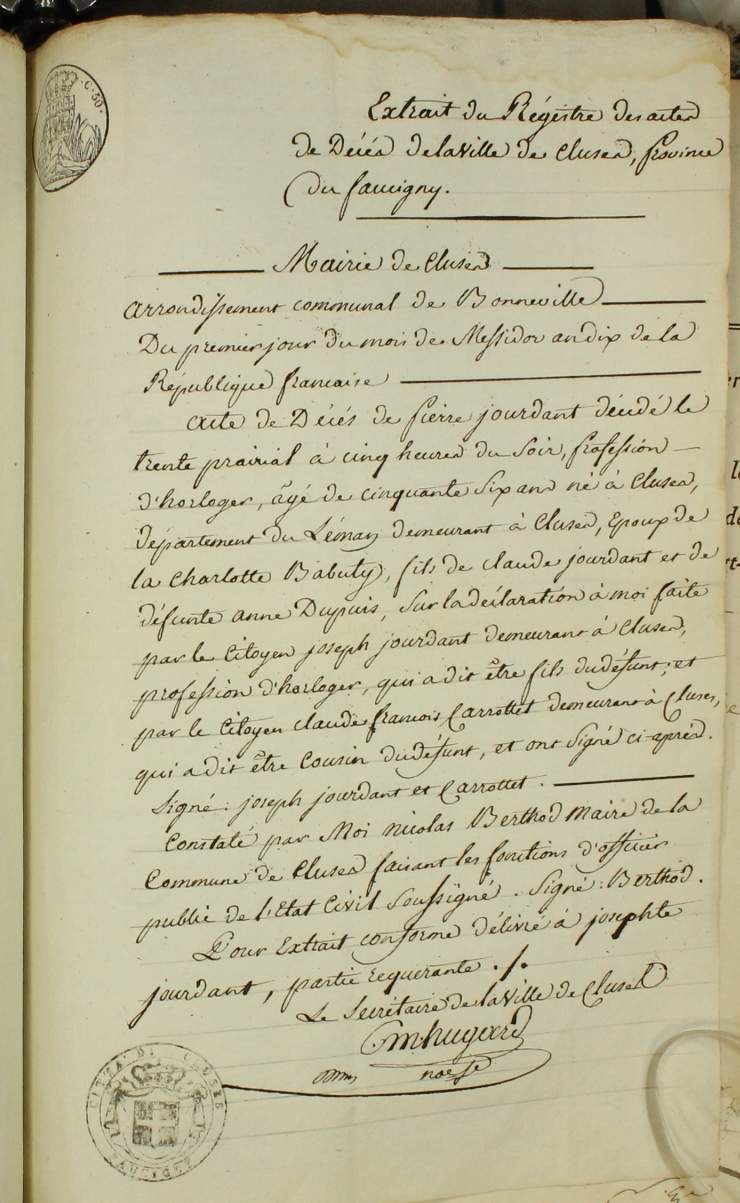 C. 30.
Extrait du Régistre des actes
de Décés de la Ville de Cluses, province
du faucigny.
Mairie de Cluses
arrondissement communal de Bonneville
Du premier jour du mois de Messidor an dix de la
République francaise
acte de Décés de pierre jourdant décédé le
trente prairial à cinq heures du Soir, profession
d'horloger, âgé de cinquante Six ans né à Cluses,
département du Léman demeurant à Cluses, Epoux de
la Charlotte Babuty, fils de claude jourdant et de
défunte anne Dupuis, Sur la déclaration à moi faite
par le Citoyen joseph jourdant demeurant à Cluses,
profession d'horloger, qui a dit être fils du défunt; et
par le Citoyen claude francois Carrottet demeurant à Cluses,
qui a dit être Cousin du défunt, et ont Signé ci-après.
Signé: joseph jourdant et Carrottet.
Constaté par Moi nicolas Berthod Maire de la
Commune de Cluses faisant les fonctions d'officier
public de l'Etat Civil Soussigné. Signé: Berthod.
Pour Extrait conforme délivré à josephte
jourdant, partie requerante ./.
Le Secrétaire de la Ville de Cluses
CITTA DI CLUSES
FAUCIGNY